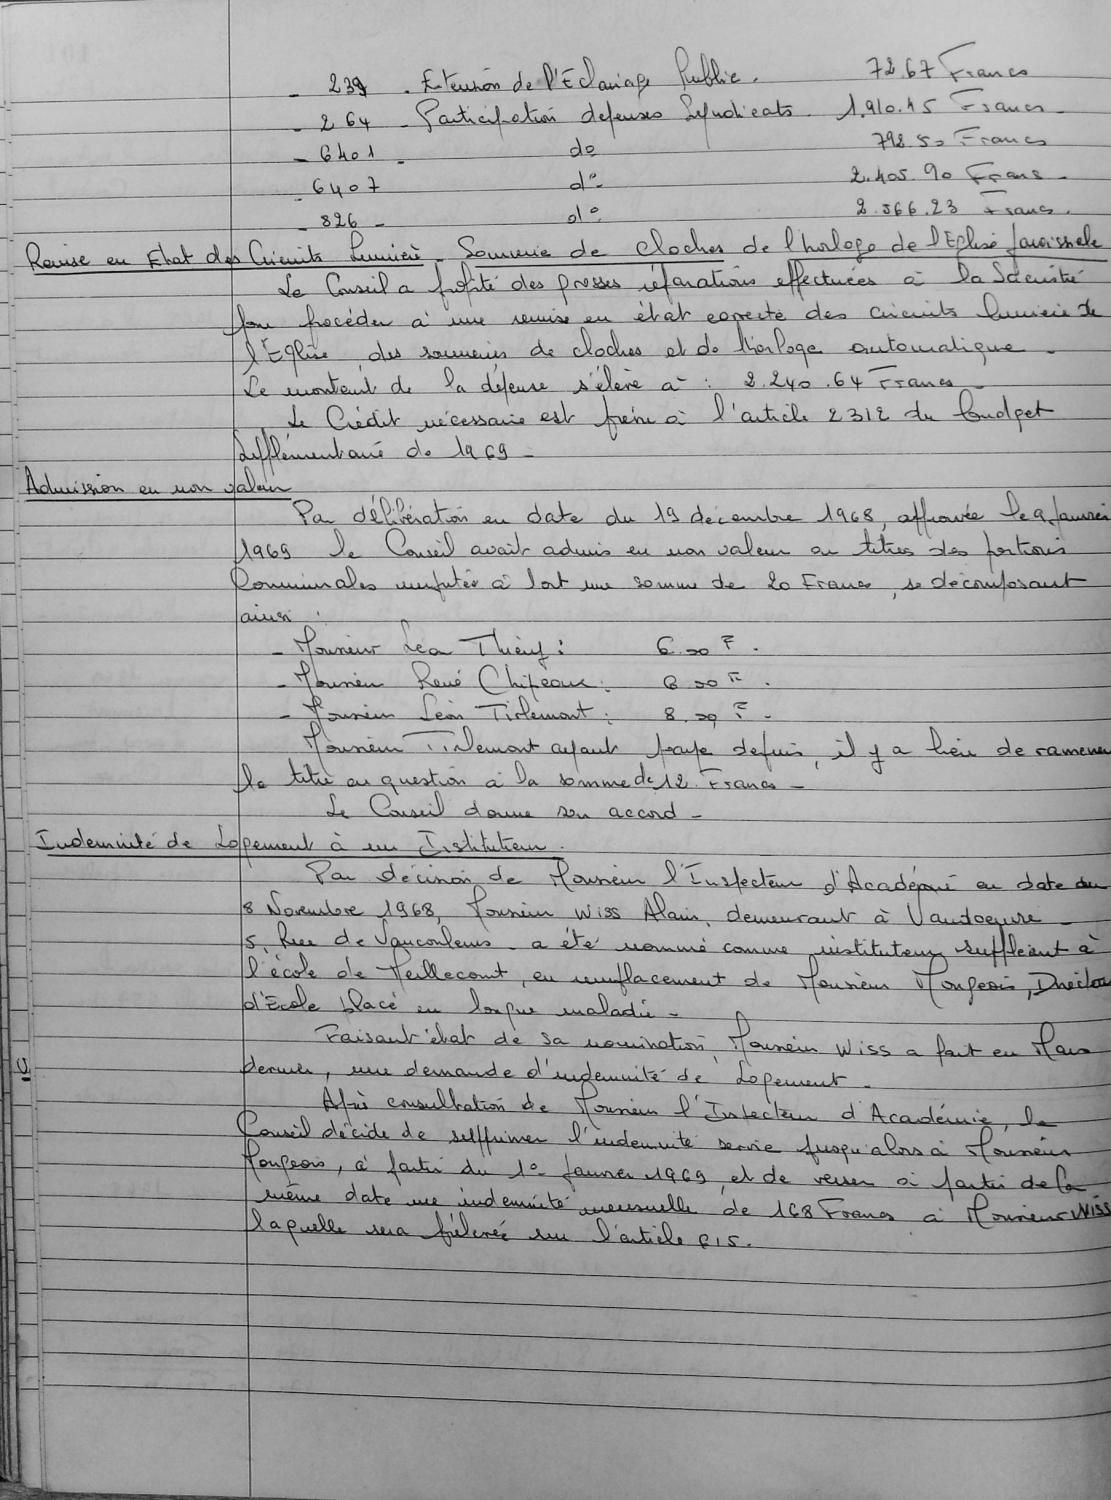 - 239 - Extension de l'Eclairage Public. 72.67 Francs
- 264 - Participation dépenses Syndicats. 1.910.45 Francs -
- 6401 - do 798.50 Francs
- 6407 do- 2.405.90 Francs -
- 826 - do 2.366.23 Francs.
Remise en Etat des Circuits Lumière - Sonnerie de cloches de l'horloge de l'Eglise Paroissiale
Le Conseil a profité des grosses réparations effectuées à la
pour procéder à une remise en état correcte des circuits lumière de
l'Eglise, des sonneries de cloches et de l'horloge automatique -
Le montant de la dépense s'élève à : 2.240.64 Francs -
Le Crédit nécessaire est prévu à l'article 2312 du budget
supplémentaire de 1969 -
Admission en non valeur
Par délibération en date du 19 décembre 1968, approuvée le 9 Janvier
1969 le Conseil avait admis en non valeur au titres des portions
Communales à tort une somme de 20 Francs, se décomposant
ainsi :
- Monsieur Léon : 6.00 F.
- Monsieur René Chipeaux : 6.00 F.
- Monsieur Léon Tirlemont : 8.00 F.
Monsieur Tirlemont ayant payé depuis, il y a lieu de ramener
le titre en question à la somme de 12 Francs -
Le Conseil donne son accord -
Indemnité de Logement à un Instituteur.
Par décision de Monsieur l'Inspecteur d'Académie en date du
8 Novembre 1968, Monsieur Wiss Alain, demeurant à Vandoeuvre -
5, Rue de Vaucouleurs - a été nommé comme instituteur suppléant à
l'école de Meillecourt, en remplacement de Monsieur Mongeois, Directeur
d'Ecole placé en longue maladie -
Faisant état de sa nomination, Monsieur Wiss a fait en Mars
dernier, une demande d'indemnité de Logement -
Après consultation de Monsieur l'Inspecteur d'Académie, le
Conseil décide de supprimer l'indemnité servie jusqu'alors à Monsieur
Mongeois, à partir du 1o Janvier 1969, et de verser à partir de la
même date une indemnité mensuelle de 168 Francs à Monsieur WISS
laquelle sera prélevée sur l'article 615.